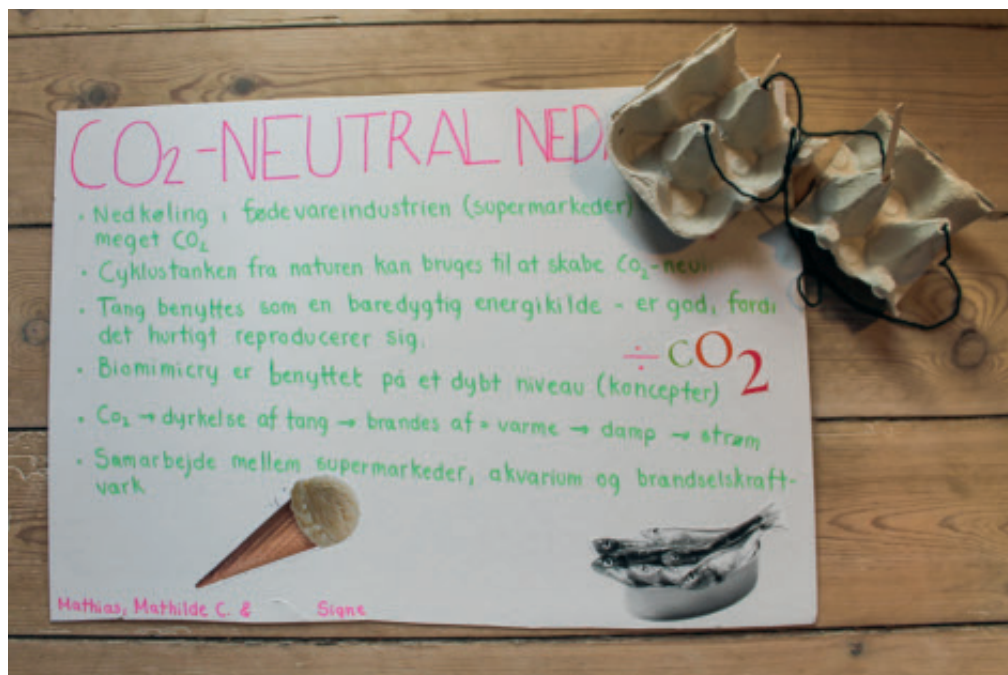 CO2-NEUTRAL NED
• Nedkøling i fødevareindustrien (supermarkeder)
meget CO2
• Cyklustanken fra naturen kan bruges til at skabe CO2-neu
• Tang benyttes som en baredygtig energikilde - er god, fordi
det hurtigt reproducerer sig.
÷CO2
• Biomimicry er benyttet på et dybt niveau (koncepter)
• Co2 → dyrkelse af tang → brandes af = varme → damp → strøm
• Samarbejde mellem supermarkeder, akvarium og brandselskraft-
vark
Mathias, Mathilde C. & Signe